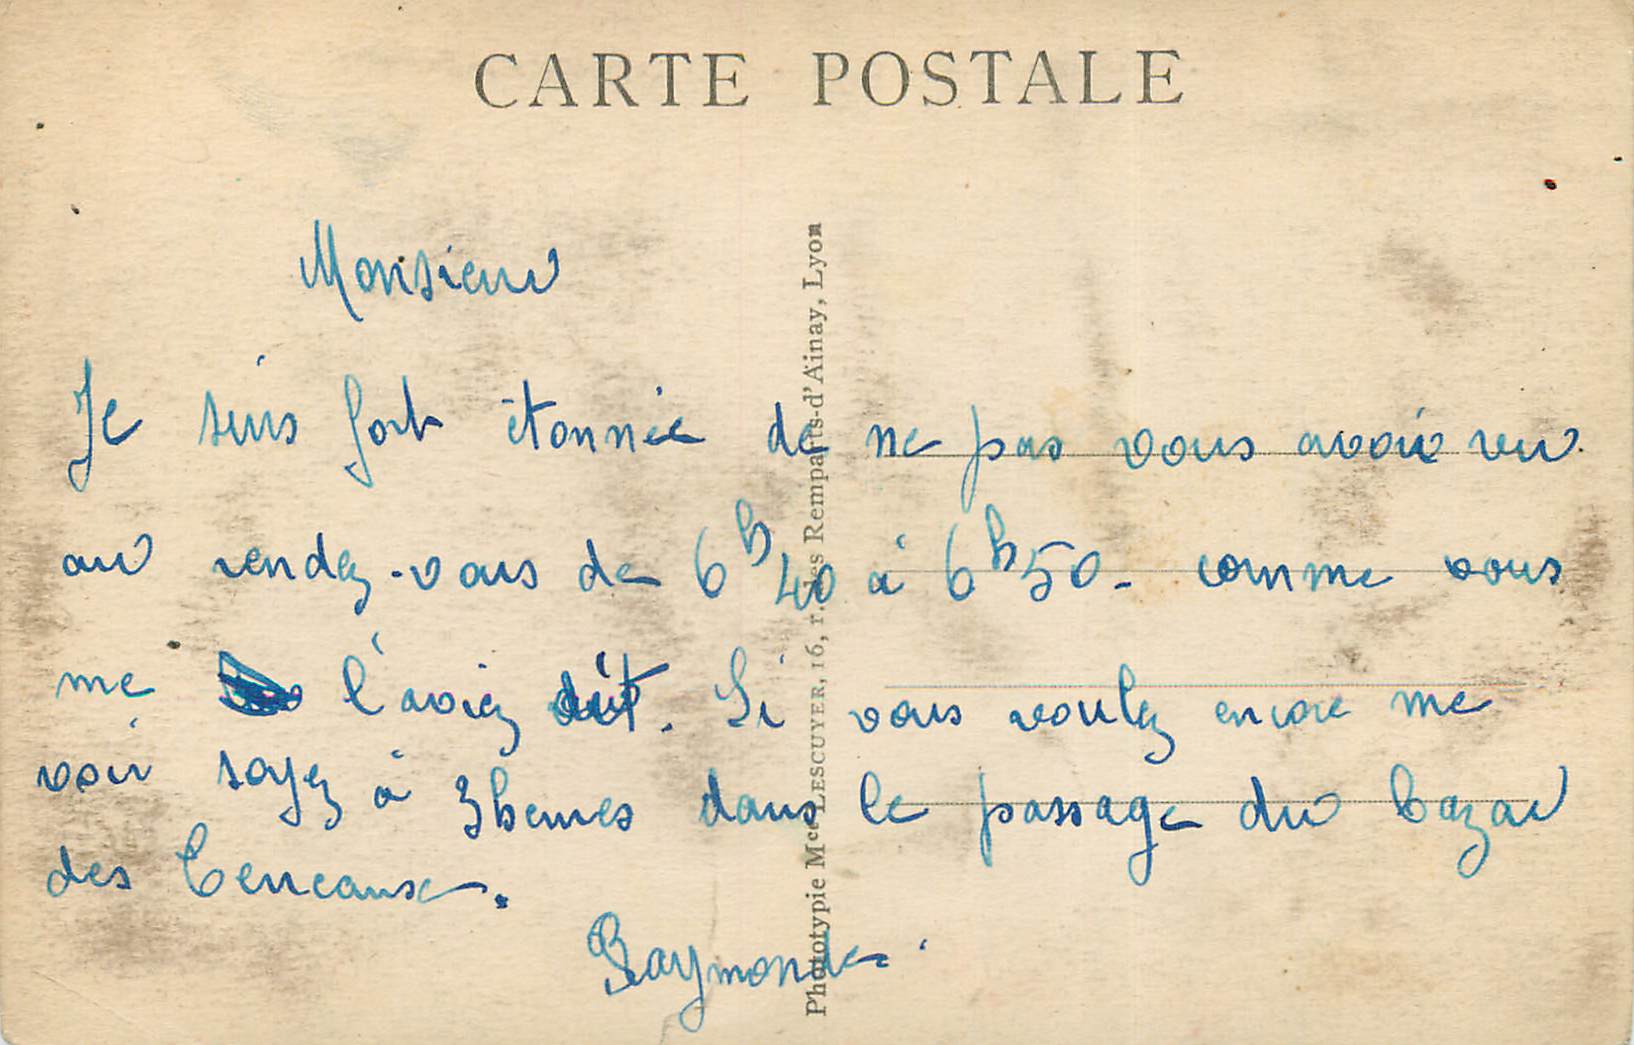 CARTE POSTALE
Monsieur
Je suis fort étonnée de ne pas vous avoir vu
au rendez-vous de 6h40 à 6h50- comme vous
me l'aviez dit. Si vous voulez encore me
voir soyez à 3heures dans le passage du bazar
des
Raymonde.
Photypie Mce LESCUYER, 16, r. des Remparts-d'Ainay, Lyon